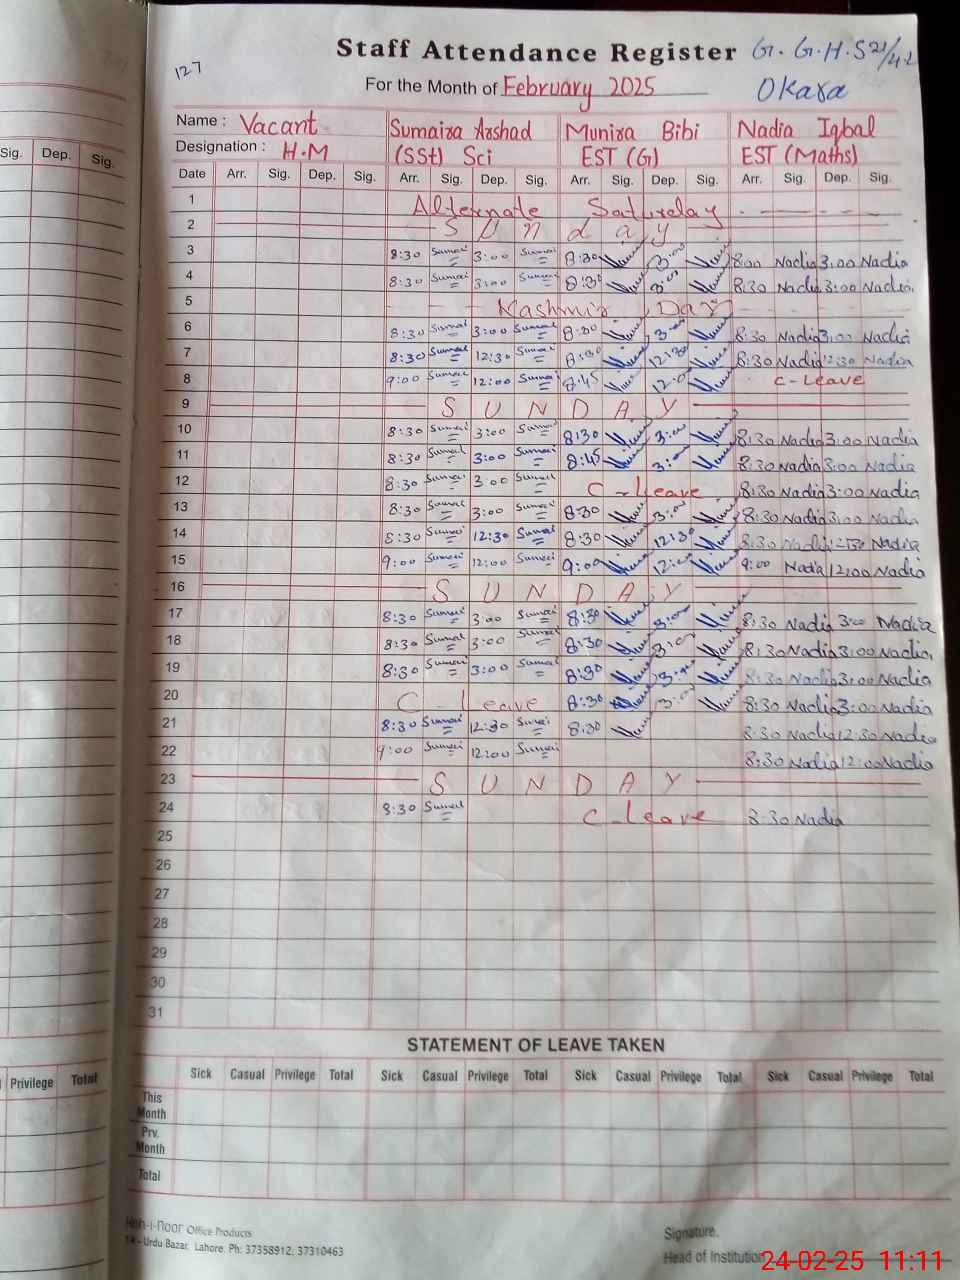 127
Staff Attendance Register G. G.H.S 21/4L
For the Month of February 2025 Okara
Name : Vacant Sumaira Arshad Munira Bibi Nadia Iqbal
Designation : H.M (SSt) Sci EST (G) EST (Maths)
Sig. Dep. Sig.
Date Arr. Sig. Dep. Sig. Arr. Sig. Dep. Sig. Arr. Sig. Dep. Sig. Arr. Sig. Dep. Sig.
1 Alternate Saturday
2 S u n d a y
3 8:30 3:00 8:30 3:00 8:00 Nadia 3:00 Nadia
4 8:30 3:00 8:30 3:00 8:30 Nadia 3:00 Nadia
5 Kashmir Day
6 8:30 3:00 8:30 3:00 8:30 Nadia 3:00 Nadia
7 8:30 12:30 8:30 12:30 8:30 Nadia 12:30 Nadia
8 9:00 12:00 8:45 12:00 C-Leave
9 S U N D A Y
10 8:30 3:00 8:30 3:00 8:30 Nadia 3:00 Nadia
11 8:30 3:00 8:45 3:00 8:30 Nadia 3:00 Nadia
12 8:30 3:00 C-Leave 8:30 Nadia 3:00 Nadia
13 8:30 3:00 8:30 3:00 8:30 Nadia 3:00 Nadia
14 8:30 12:30 8:30 12:30 8:30 Nadia 12:30 Nadia
15 9:00 12:00 9:00 12:00 9:00 Nadia 12:00 Nadia
16 S U N D A Y
17 8:30 3:00 8:30 3:00 8:30 Nadia 3:00 Nadia
18 8:30 3:00 8:30 3:00 8:30 Nadia 3:00 Nadia
19 8:30 3:00 8:30 3:00 8:30 Nadia 3:00 Nadia
20 C-Leave 8:30 3:00 8:30 Nadia 3:00 Nadia
21 8:30 12:30 8:30 8:30 Nadia 12:30 Nadia
22 9:00 12:00 8:30 Nadia 12:00 Nadia
23 S U N D A Y
24 8:30 C-leave 8:30 Nadia
25
26
27
28
29
30
31
STATEMENT OF LEAVE TAKEN
Privilege Total
Sick Casual Privilege Total Sick Casual Privilege Total Sick Casual Privilege Total Sick Casual Privilege Total
This
Month
Prv.
Month
Total
Koh-i-noor Office Products
14 - Urdu Bazar, Lahore. Ph: 37358912, 37310463
Signature.
Head of Institution
24-02-25 11:11